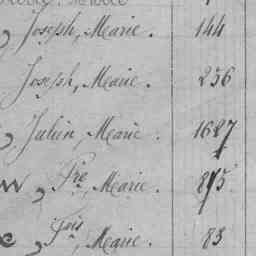 Joseph, Marie. 144
Joseph, Marie. 256
Julien, Marie. 1627
Pre, Marie. 875
Fois, Marie. 83